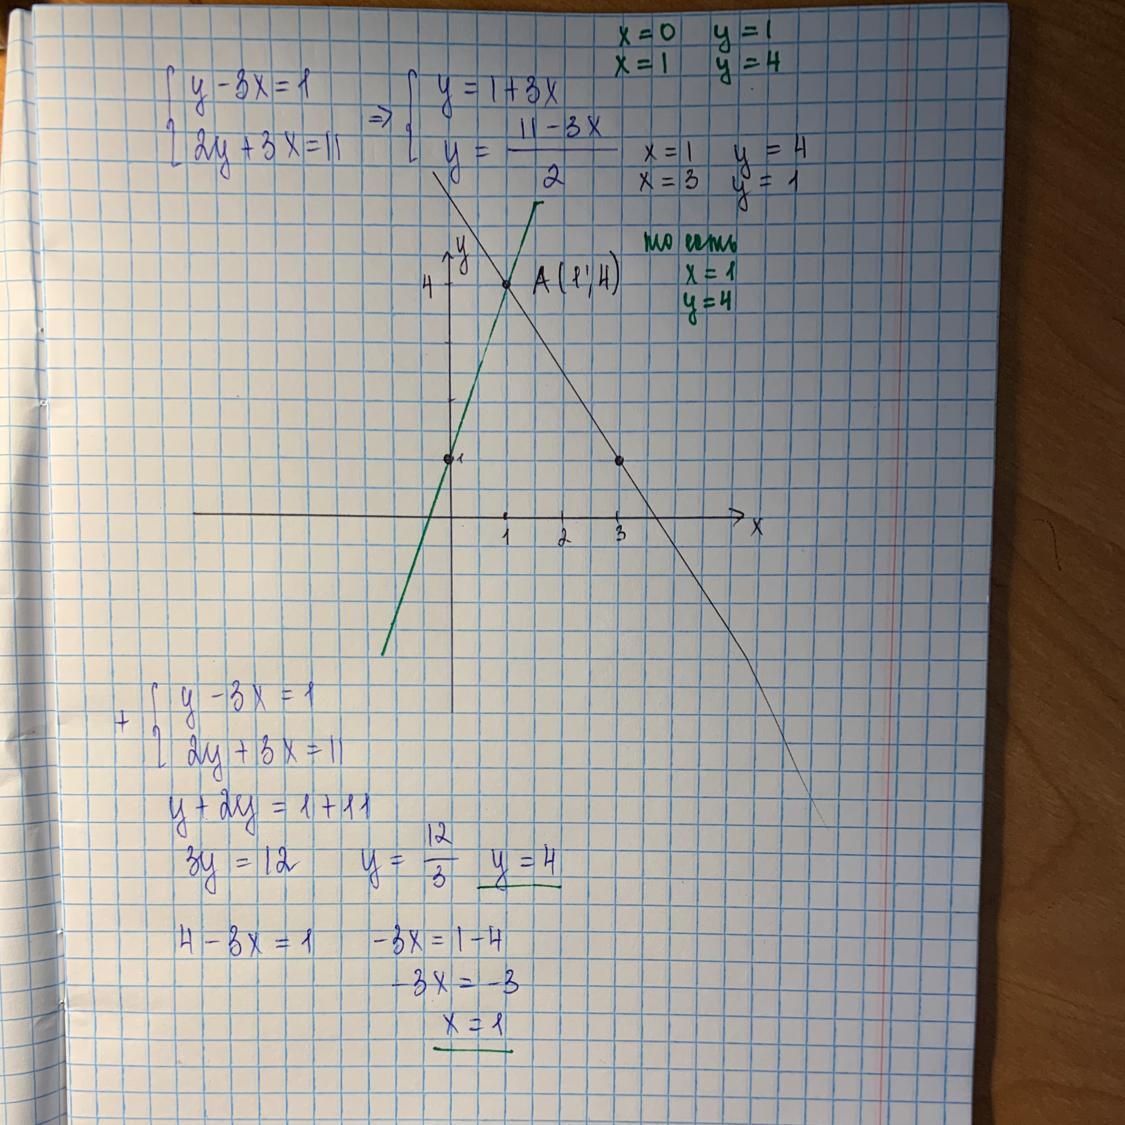 x = 0 y = 1
x = 1 y = 4
{ y - 3x = 1 => { y = 1 + 3x
{ 2y + 3x = 11 { y = (11 - 3x)/2
x = 1 y = 4
x = 3 y = 1
то есть
x = 1
y = 4
y
4
A(1; 4)
1
1 2 3 x
+ { y - 3x = 1
{ 2y + 3x = 11
y + 2y = 1 + 11
3y = 12 y = 12/3 y = 4
4 - 3x = 1 -3x = 1 - 4
-3x = -3
x = 1